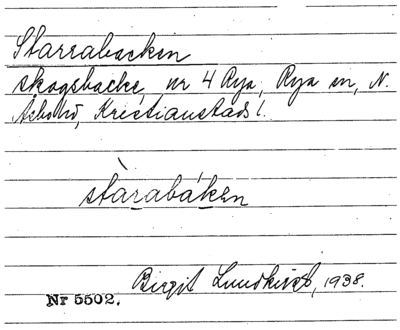 Starrabacken
skogsbacke, nr 4 Rya, Rya sn, N.
Åsbo hd, Kristianstads l.
stàrabáken
Birgit Lundkvist, 1938.
Nr 5502.